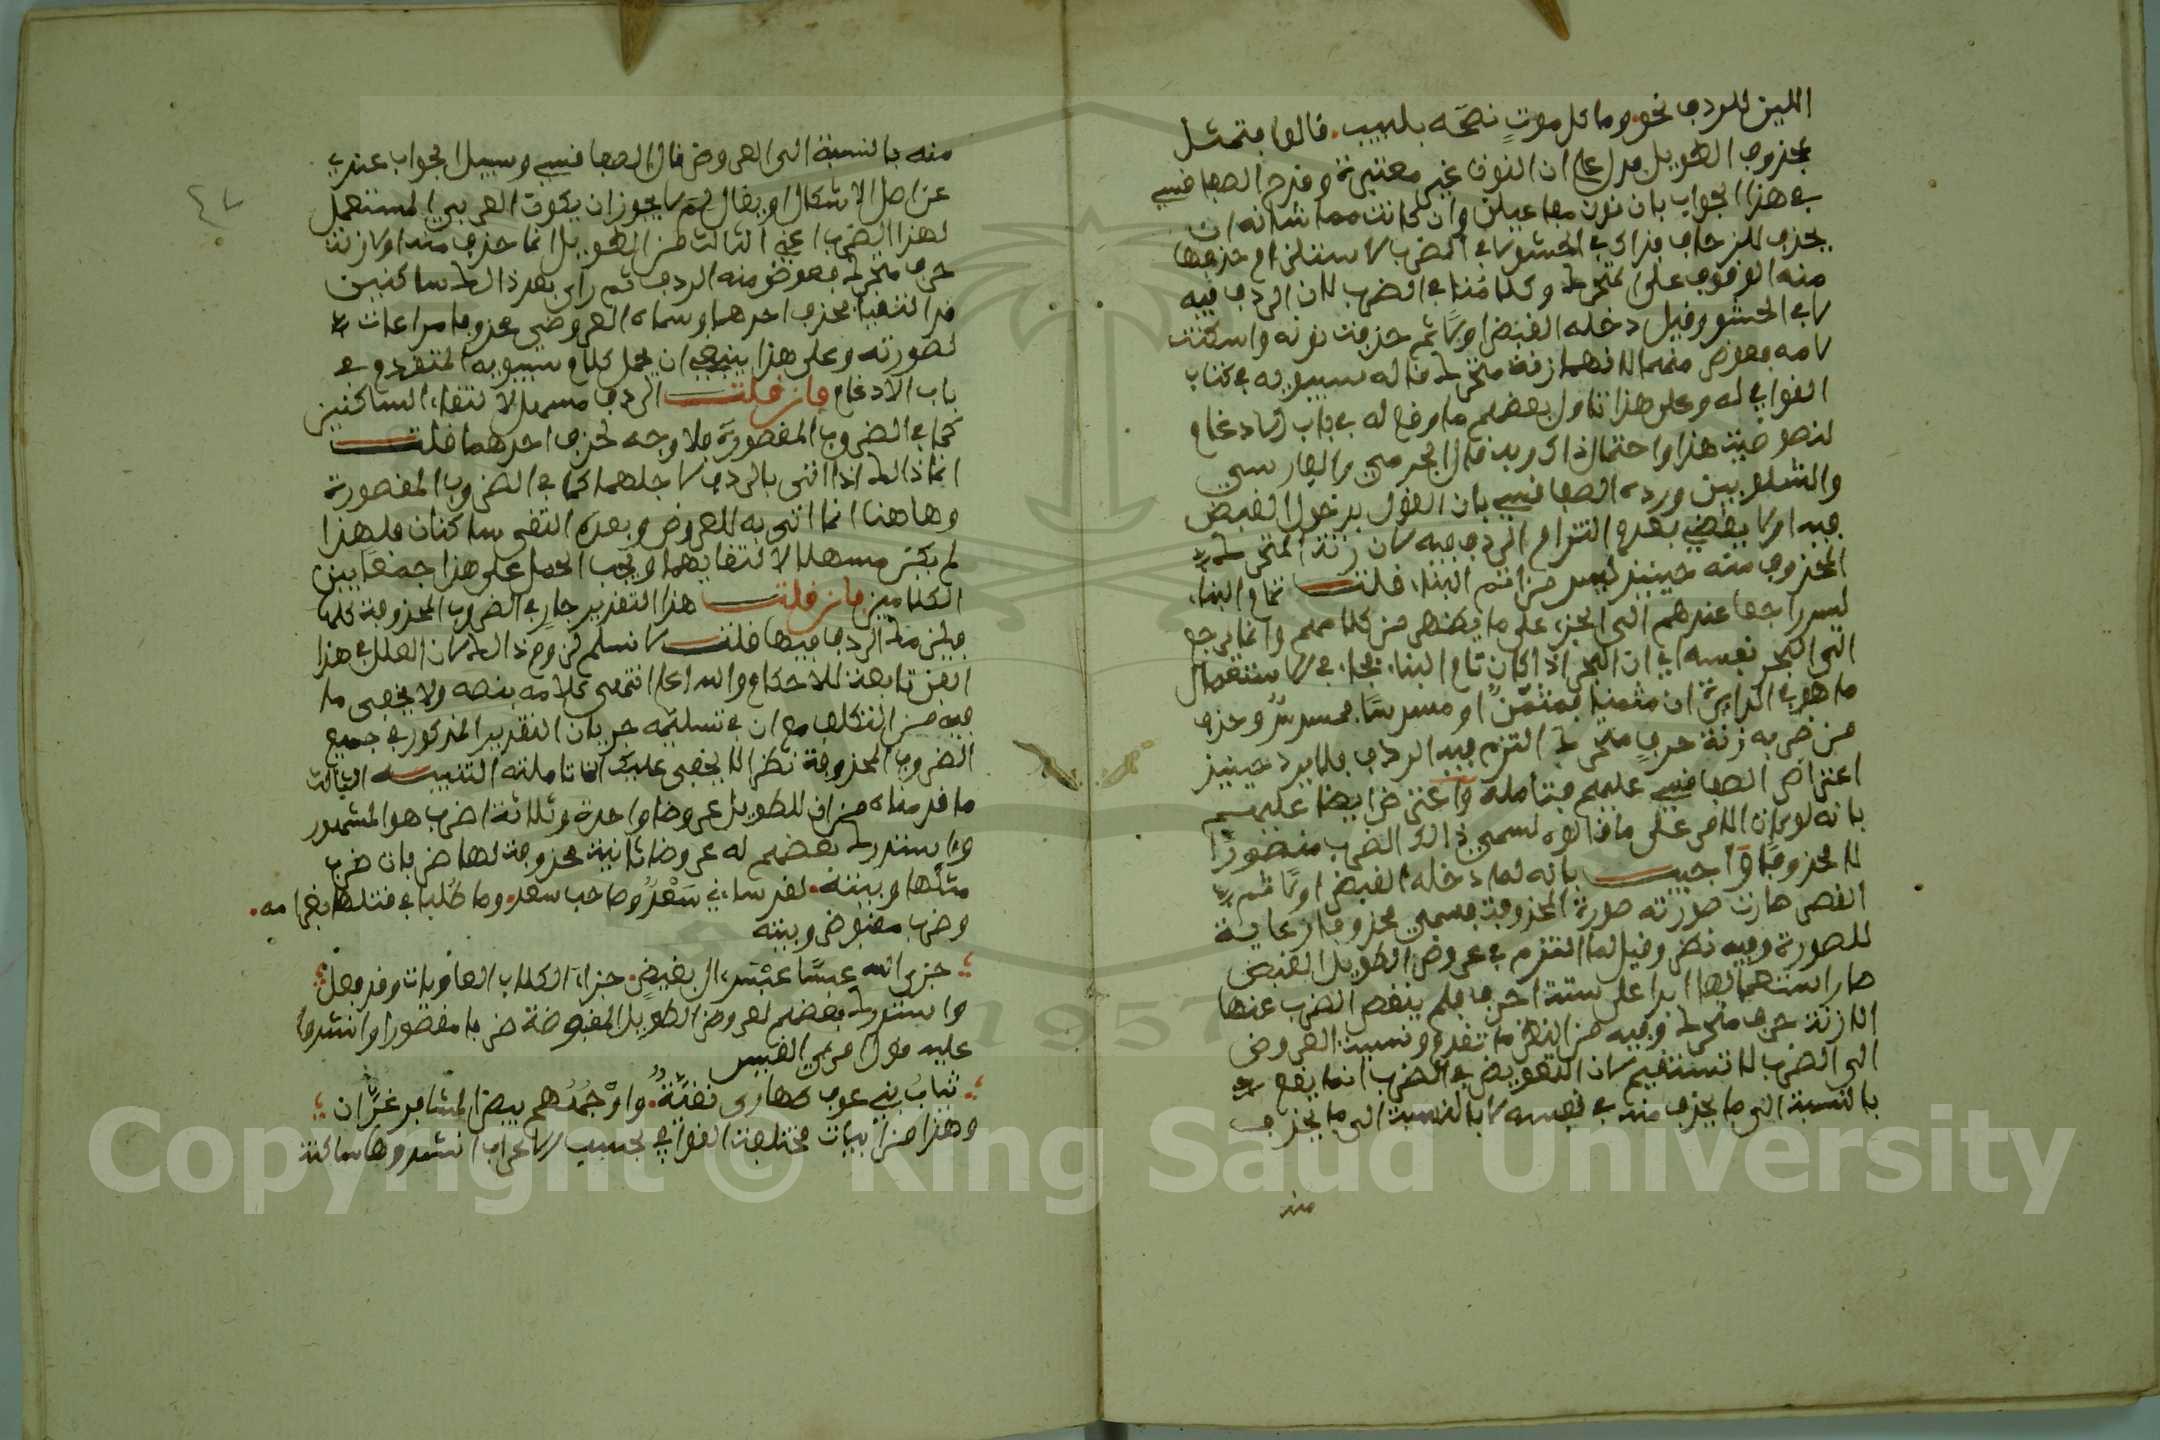 اللين للردف نحو وما كل موت نصحه بلبيب. قالوا فتمثل
بمحذوف الطويل يدل على ان النون غير معتبرة وقدح الصفاقسي
في هذا الجواب بان نون مفاعيلن وان كانت مما شانه ان
يحذف للزحاف فذاك في الحشو لا في الضرب لاستلزام حذفها
منه الوقوف على المتحرك وكلامنا في الضرب لان الردف فيه
لا في الحشو وقيل دخله القبض اولا ثم حذفت نونه واسكنت
لامه فعوض منهما لانهما زنة متحرك قاله سيبويه في كتاب
القوافي له وعلى هذا تاول بعضهم ما وقع له في باب الادغام
لنصوصيت هذا واحتمال ذاك وبه قال الجرمي والفارسي
والشلوبين ورده الصفاقسي بان القول بدخول القبض
فيه اولا يقضي بعدم التزام الردف فيه لان زنة المتحرك
المحذوف منه حينئذ ليس من اتم البناء قلت تمام البناء
ليس راجعا عندهم الى الجزء على ما يظهر من كلامهم وانما يرجع
الى البحر نفسه اي ان البحر اذا كان تام البناء فجاء في الاستعمال
ما هو في الدايرة ان مثمنا فمثمن او مسدسا فمسدس وحذف
من ضربه زنة حرف متحرك التزم فيه الردف فلا يرد حينئذ
اعتراض الصفاقسي عليهم فتامله واعترض ايضا عليهم
بانه لو كان الامر على ما قالوه لسمي ذالك الضرب مقصورا
لا محذوفا واجيب بانه لما دخله القبض اولا ثم
القصر صارت صورته صورة المحذوف فسمي محذوفا رعاية
للصورة وفيه نظر وقيل لما التزم في عروض الطويل القبض
صار استعمالها ابدا على ستة احرف فلم ينقص الضرب عنها
الا زنة حرف متحرك وفيه من النظر ما تقدم ونسبة العروض
الى الضرب لا تستقيم لان التعويض في الضرب انما يقع
بالنسبة الى ما يحذف منه في نفسه لا بالنسبة الى ما يحذف
منه
٤٧
منه بالنسبة الى العروض قال الصفاقسي وسبيل الجواب عندي
عن اصل الاشكال ان يقال لم لا يجوز ان يكون العربي المستعمل
لهذا الضرب اعني الثالث من الطويل انما حذف منه اولا زنة
حرف متحرك فعوض منه الردف ثم راى بعد ذالك ساكنين
قد التقيا فحذف احدهما وسماه العروضي محذوفا مراعات
لصورته وعلى هذا ينبغي ان يحمل كلام سيبويه المتقدم في
باب الادغام فان قلت الردف مسهل لالتقاء الساكنين
كما في الضروب المقصورة فلا وجه لحذف احدهما قلت
انما ذالك اذا اتى بالردف لاجلهما كما في الضروب المقصورة
وهاهنا انما اتى به للعروض وبعده التقى ساكنان فلهذا
لم يكن مسهلا لالتقايهما ويجب الحمل على هذا جمعا بين
الكلامين فان قلت هذا التقدير جار في الضروب المحذوفة كلها
فيلزمك الردف فيها قلت لا نسلم لزوم ذالك لان العلل في هذا
الفن تابعة للاحكام والله اعلم انتهى كلامه بنصه ولا يخفى ما
فيه من التكلف مع ان في تسليمه جريان التقدير المذكور في جميع
الضروب المحذوفة نظر الا يخفى عليك ان تاملته التنبيه الثالث
ما قدمناه من ان للطويل عروضا واحدة وثلاثة اضرب هو المشهور
واستدرك بعضهم له عروضا ثانية محذوفة لها ضربان ضرب
مثلها وبيته. لقد ساءني سعد وصاحب سعد. وما طلبا في قتلها بغرامه.
وضرب مقبوض وبيته
جزى الله عبسا عبس ال بغيض. جزاء الكلاب العاويات وقد فعل
واستدرك بعضهم لعروض الطويل المقبوضة ضربا مقصورا وانشدوا
عليه قول امرئ القيس
ثياب بني عوف طهارى نقية. واوجههم بيض المشافر غران
وهذا من ابيات مختلفة القوافي بحسب الاعراب انشدوها ساكنة